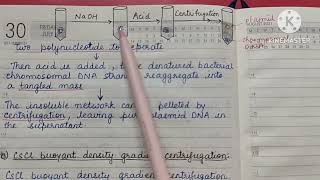 NaOH Acid Centrifugation
30 FRIDAY
JULY
plasmid
chromosomal
KINEMASTER
Two polynucleotide to separate
Then acid is added, the denatured bacterial
chromosomal DNA strand reaggregate into
a tangled mass
The insoluble network can pelleted by
centrifugation, leaving pure plasmid DNA in
the supernatant.
CsCl buoyant density gradient centrifugation:
CsCl buoyant density gradient centrifugation